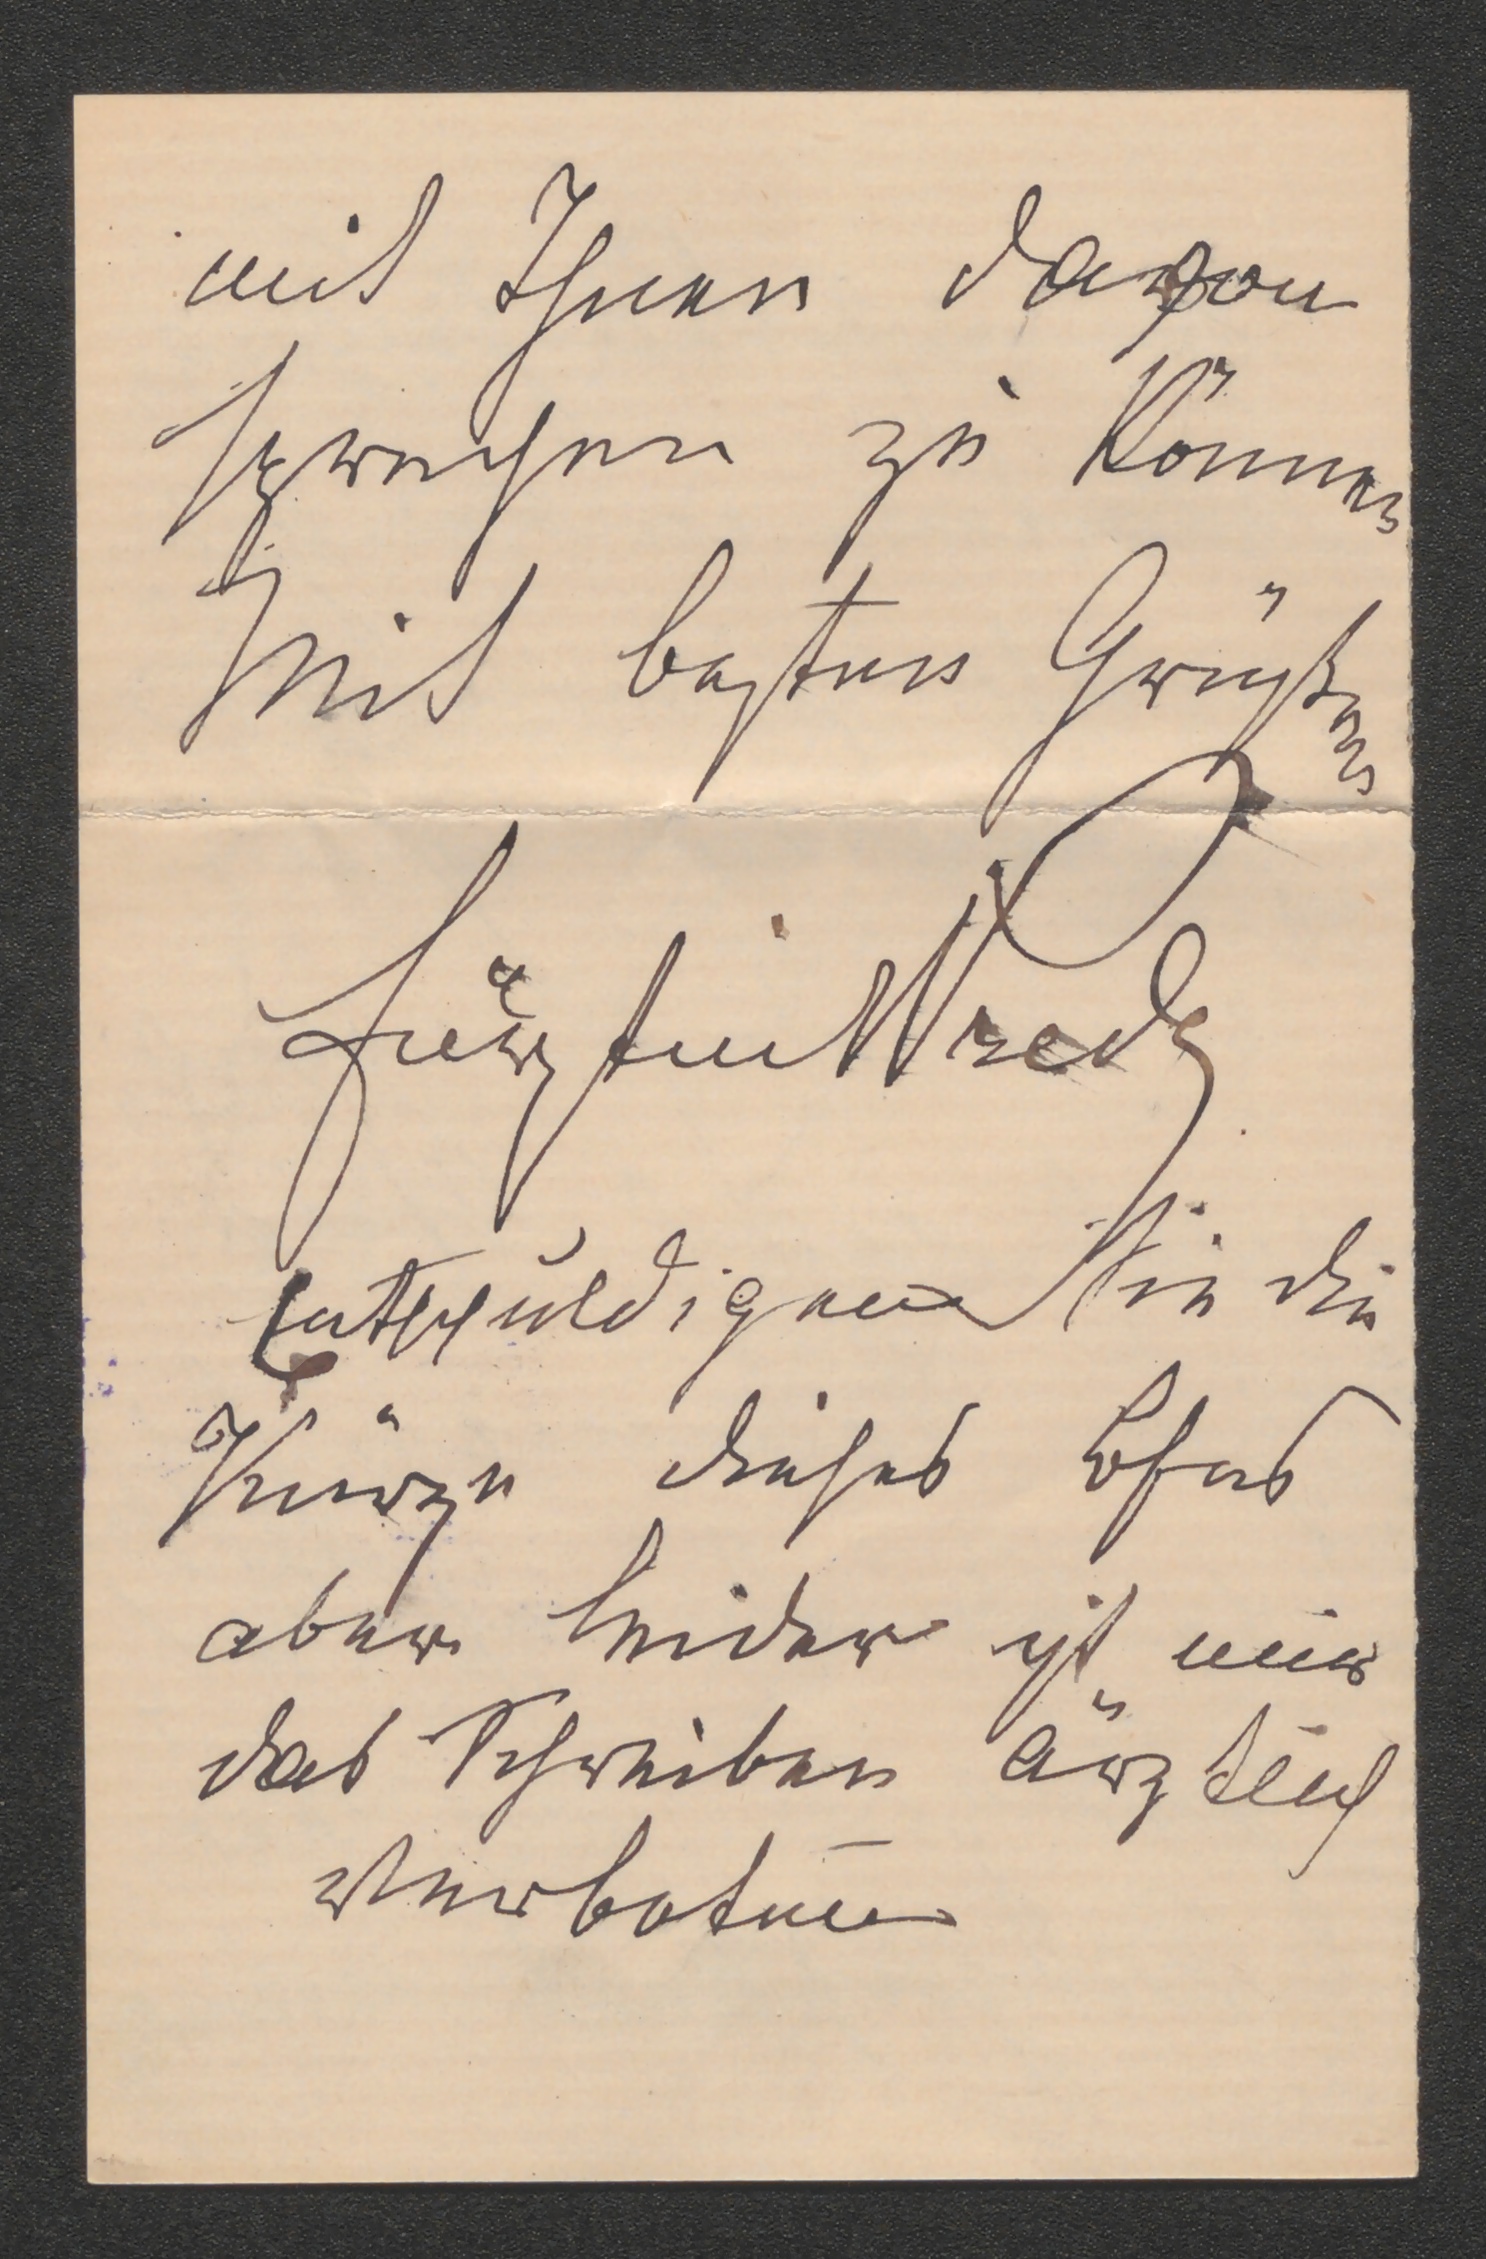 mit Ihnen davon
sprechen zu können
Mit besten Grüßen
Fürstin Wrede
Entschuldigen Sie die
Kürze dieses
aber leider ist mir
das Schreiben ärztlich
verboten